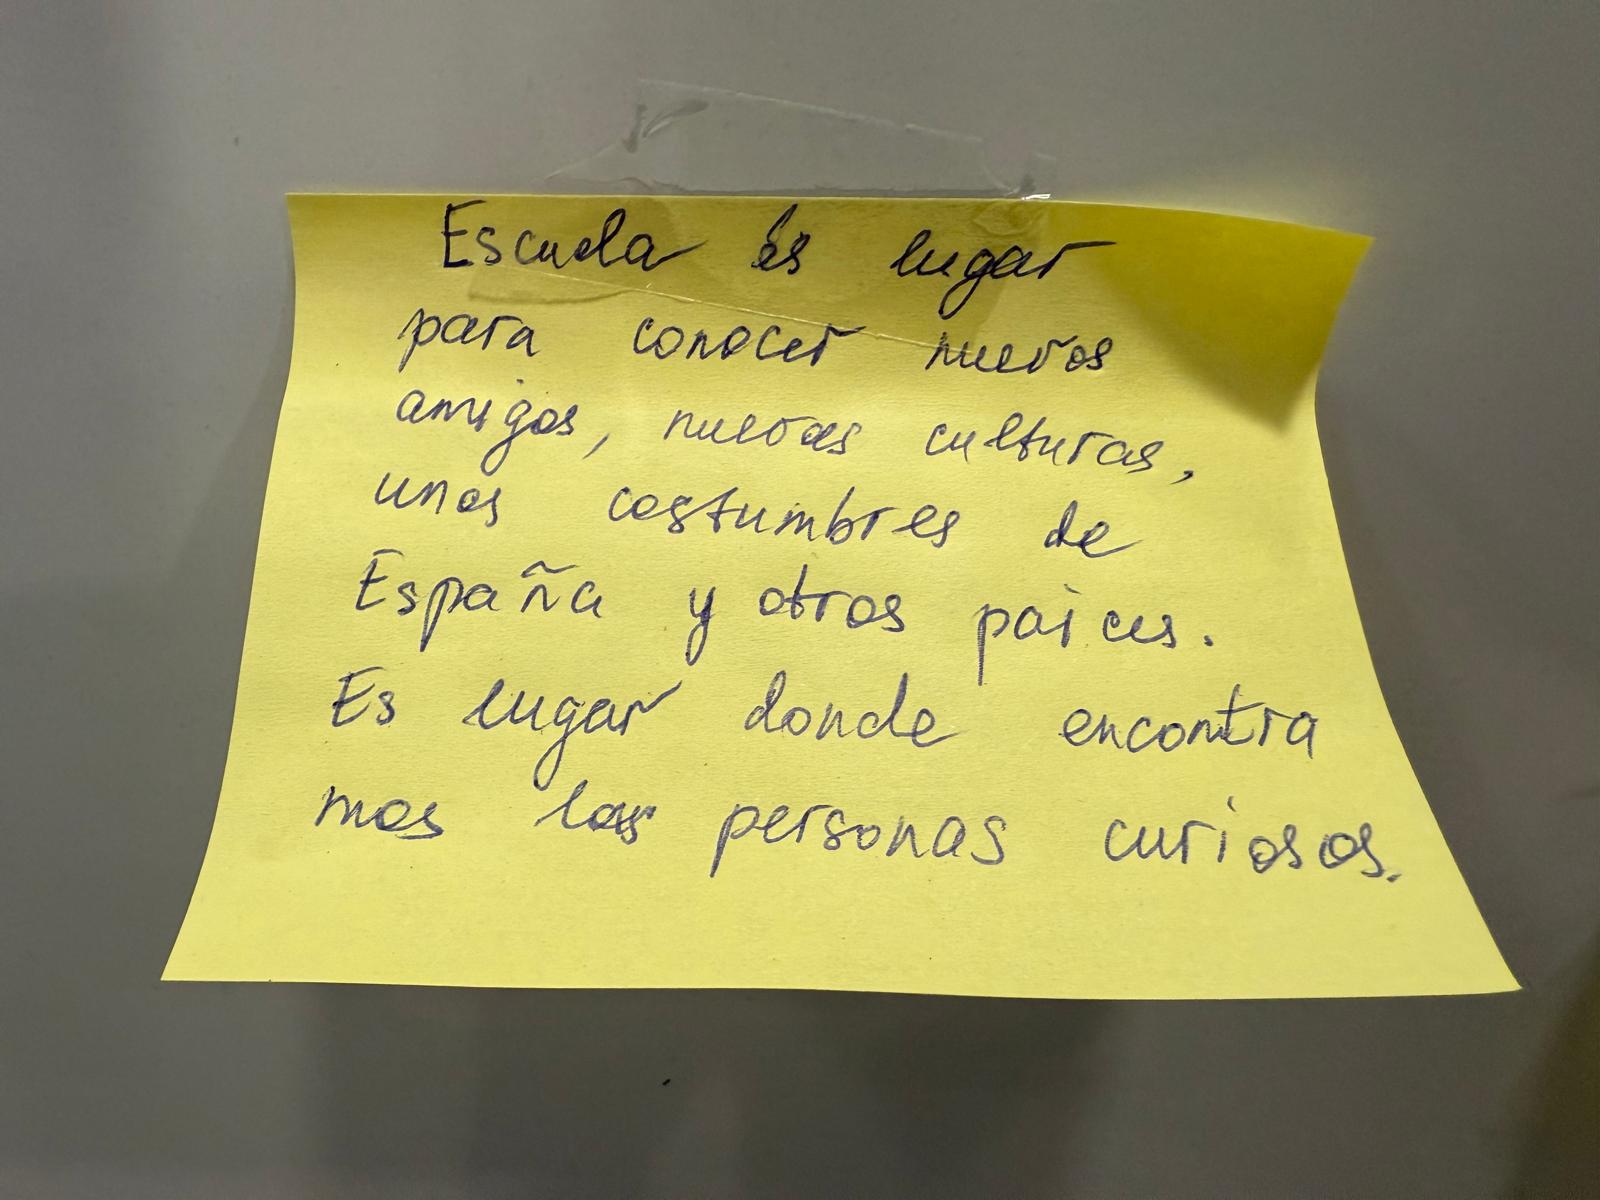 Escuela es lugar
para conocer nuevos
amigos, nuevas culturas,
unos costumbres de
España y otros paices.
Es lugar donde encontra
mos las personas curiosos.